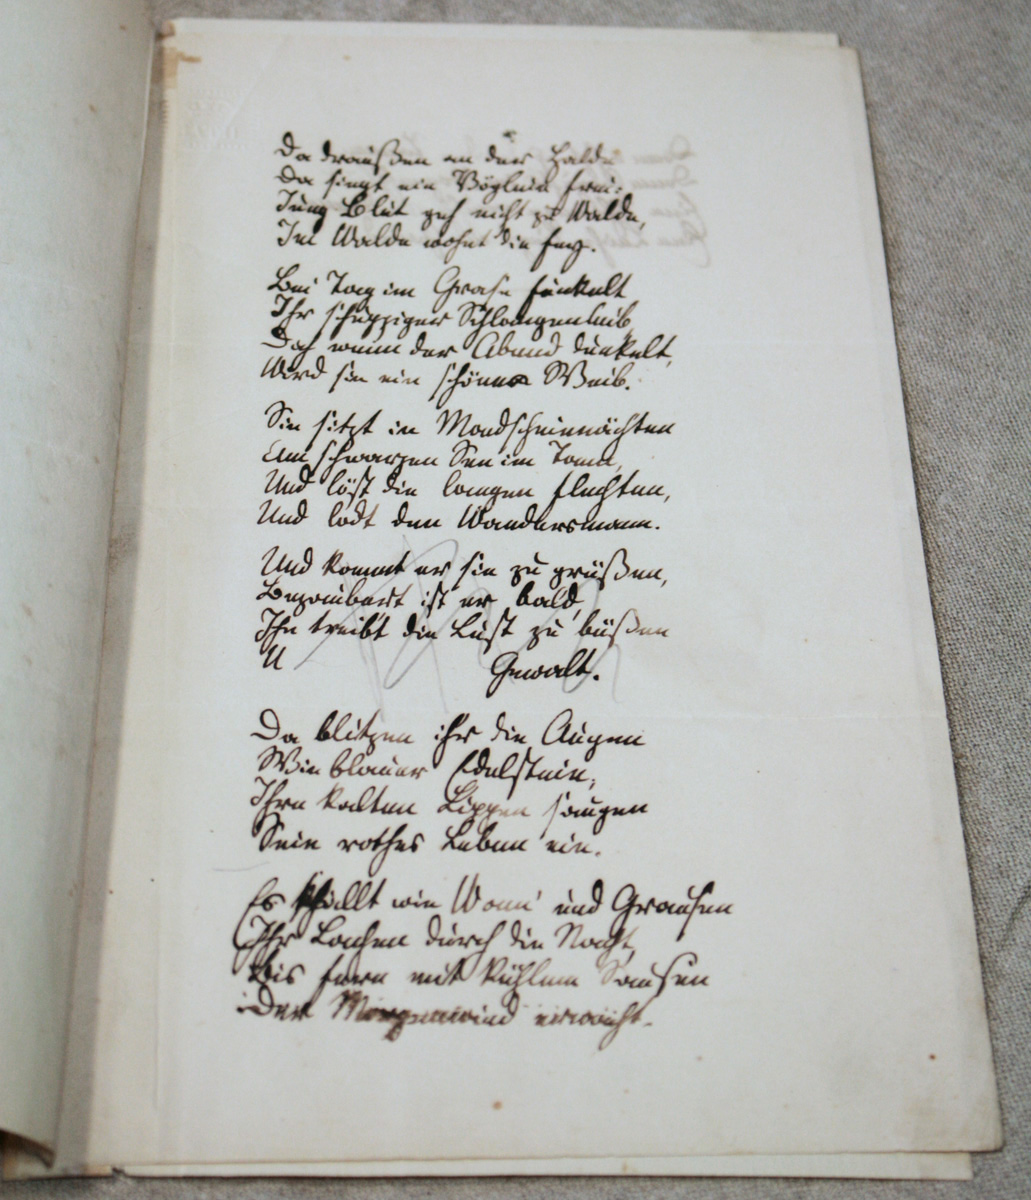 Da draußen an der Halde
Da singt ein Vöglein frei:
Jung Blut geh nicht zu Walde,
Im Walde wohnt die Fey.
Bei Tag im Grase funkelt
Ihr schuppiger Schlangenleib,
Doch wenn der Abend dunkelt,
Wird sie ein schönes Weib.
Sie sitzt in Mondscheinnächten
Am schwarzen See im Tann,
Und löst die langen Flechten,
Und lockt den Wandersmann.
Und kommt er sie zu grüßen,
Bezaubert ist er bald,
Ihn treibt die Lust zu büßen
U Gewalt.
Da blitzen ihr die Augen
Wie blauer Edelstein,
Ihre kalten Lippen saugen
Sein rothes Leben ein.
Es schallt wie Wonn' und Grausen
Ihr Lachen durch die Nacht,
Bis fern mit kühlem Sausen
Der Morgenwind erwacht.